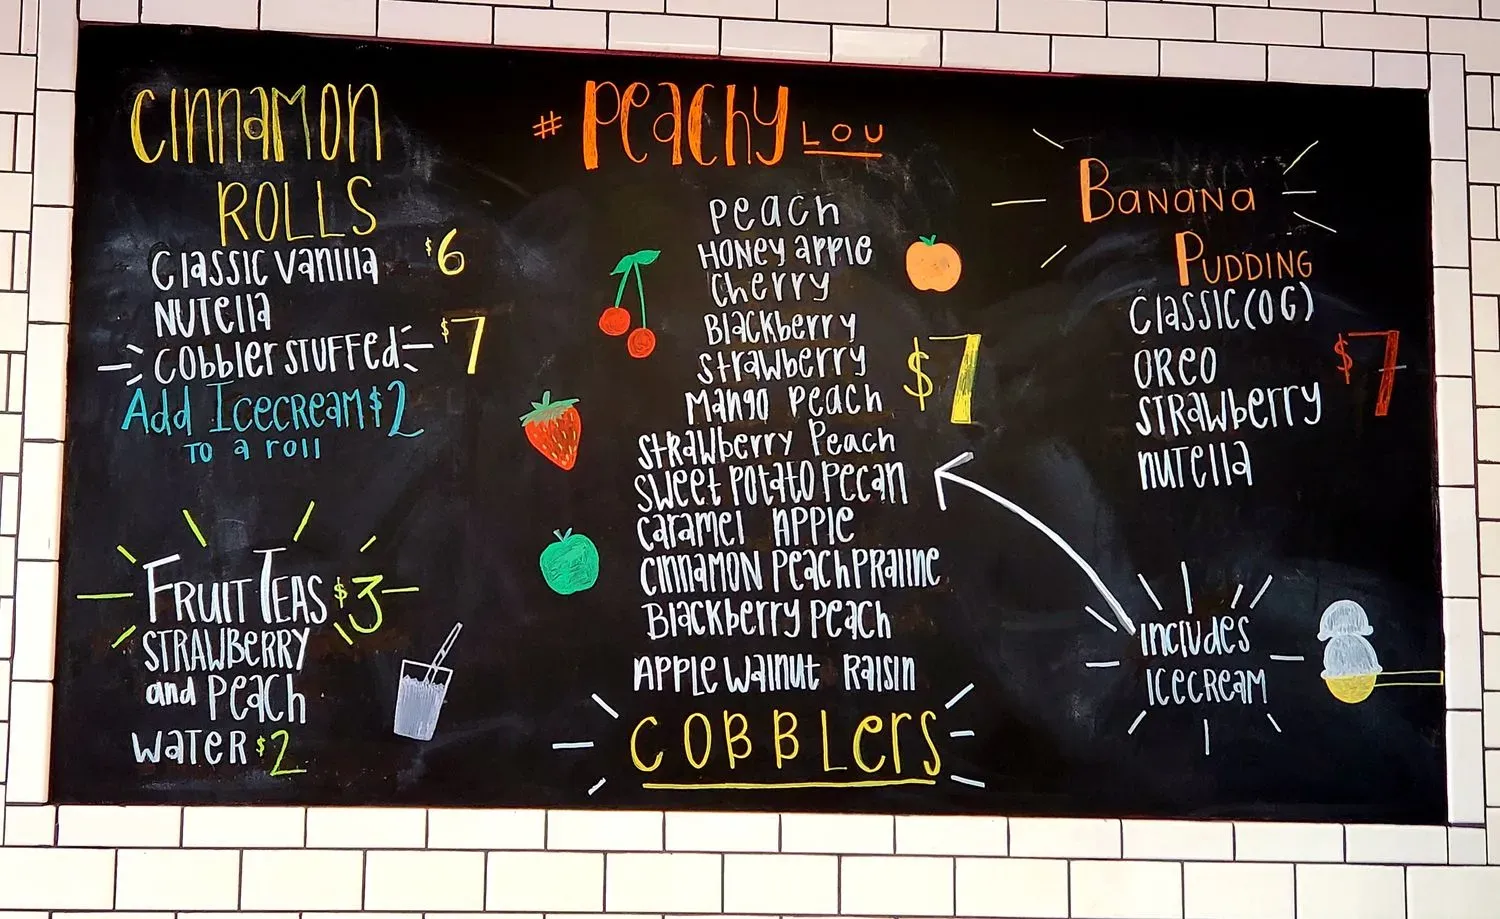 CINNAMON
ROLLS
Classic Vanilla $6
NUTELLA
COBBLER STUFFED $7
Add Icecream $2
TO a roll
FRUIT TEAS $3
STRAWBERRY
and PEACH
WATER $2
# PEACHY LOU
PEACH
HONEY APPLE
CHERRY
BLACKBERRY
STRAWBERRY
MANGO PEACH
$7
STRAWBERRY PEACH
SWEET POTATO PECAN
CARAMEL APPLE
CINNAMON PEACH PRALINE
BLACKBERRY PEACH
APPLE WALNUT RAISIN
COBBLERS
BANANA
PUDDING
CLASSIC (OG)
OREO
$7
STRAWBERRY
NUTELLA
INCLUDES
ICECREAM